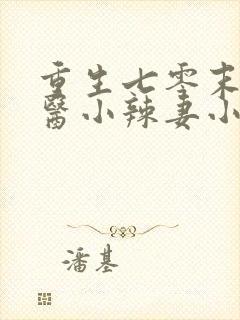 重生七零末
醫小辣妻小
潘基